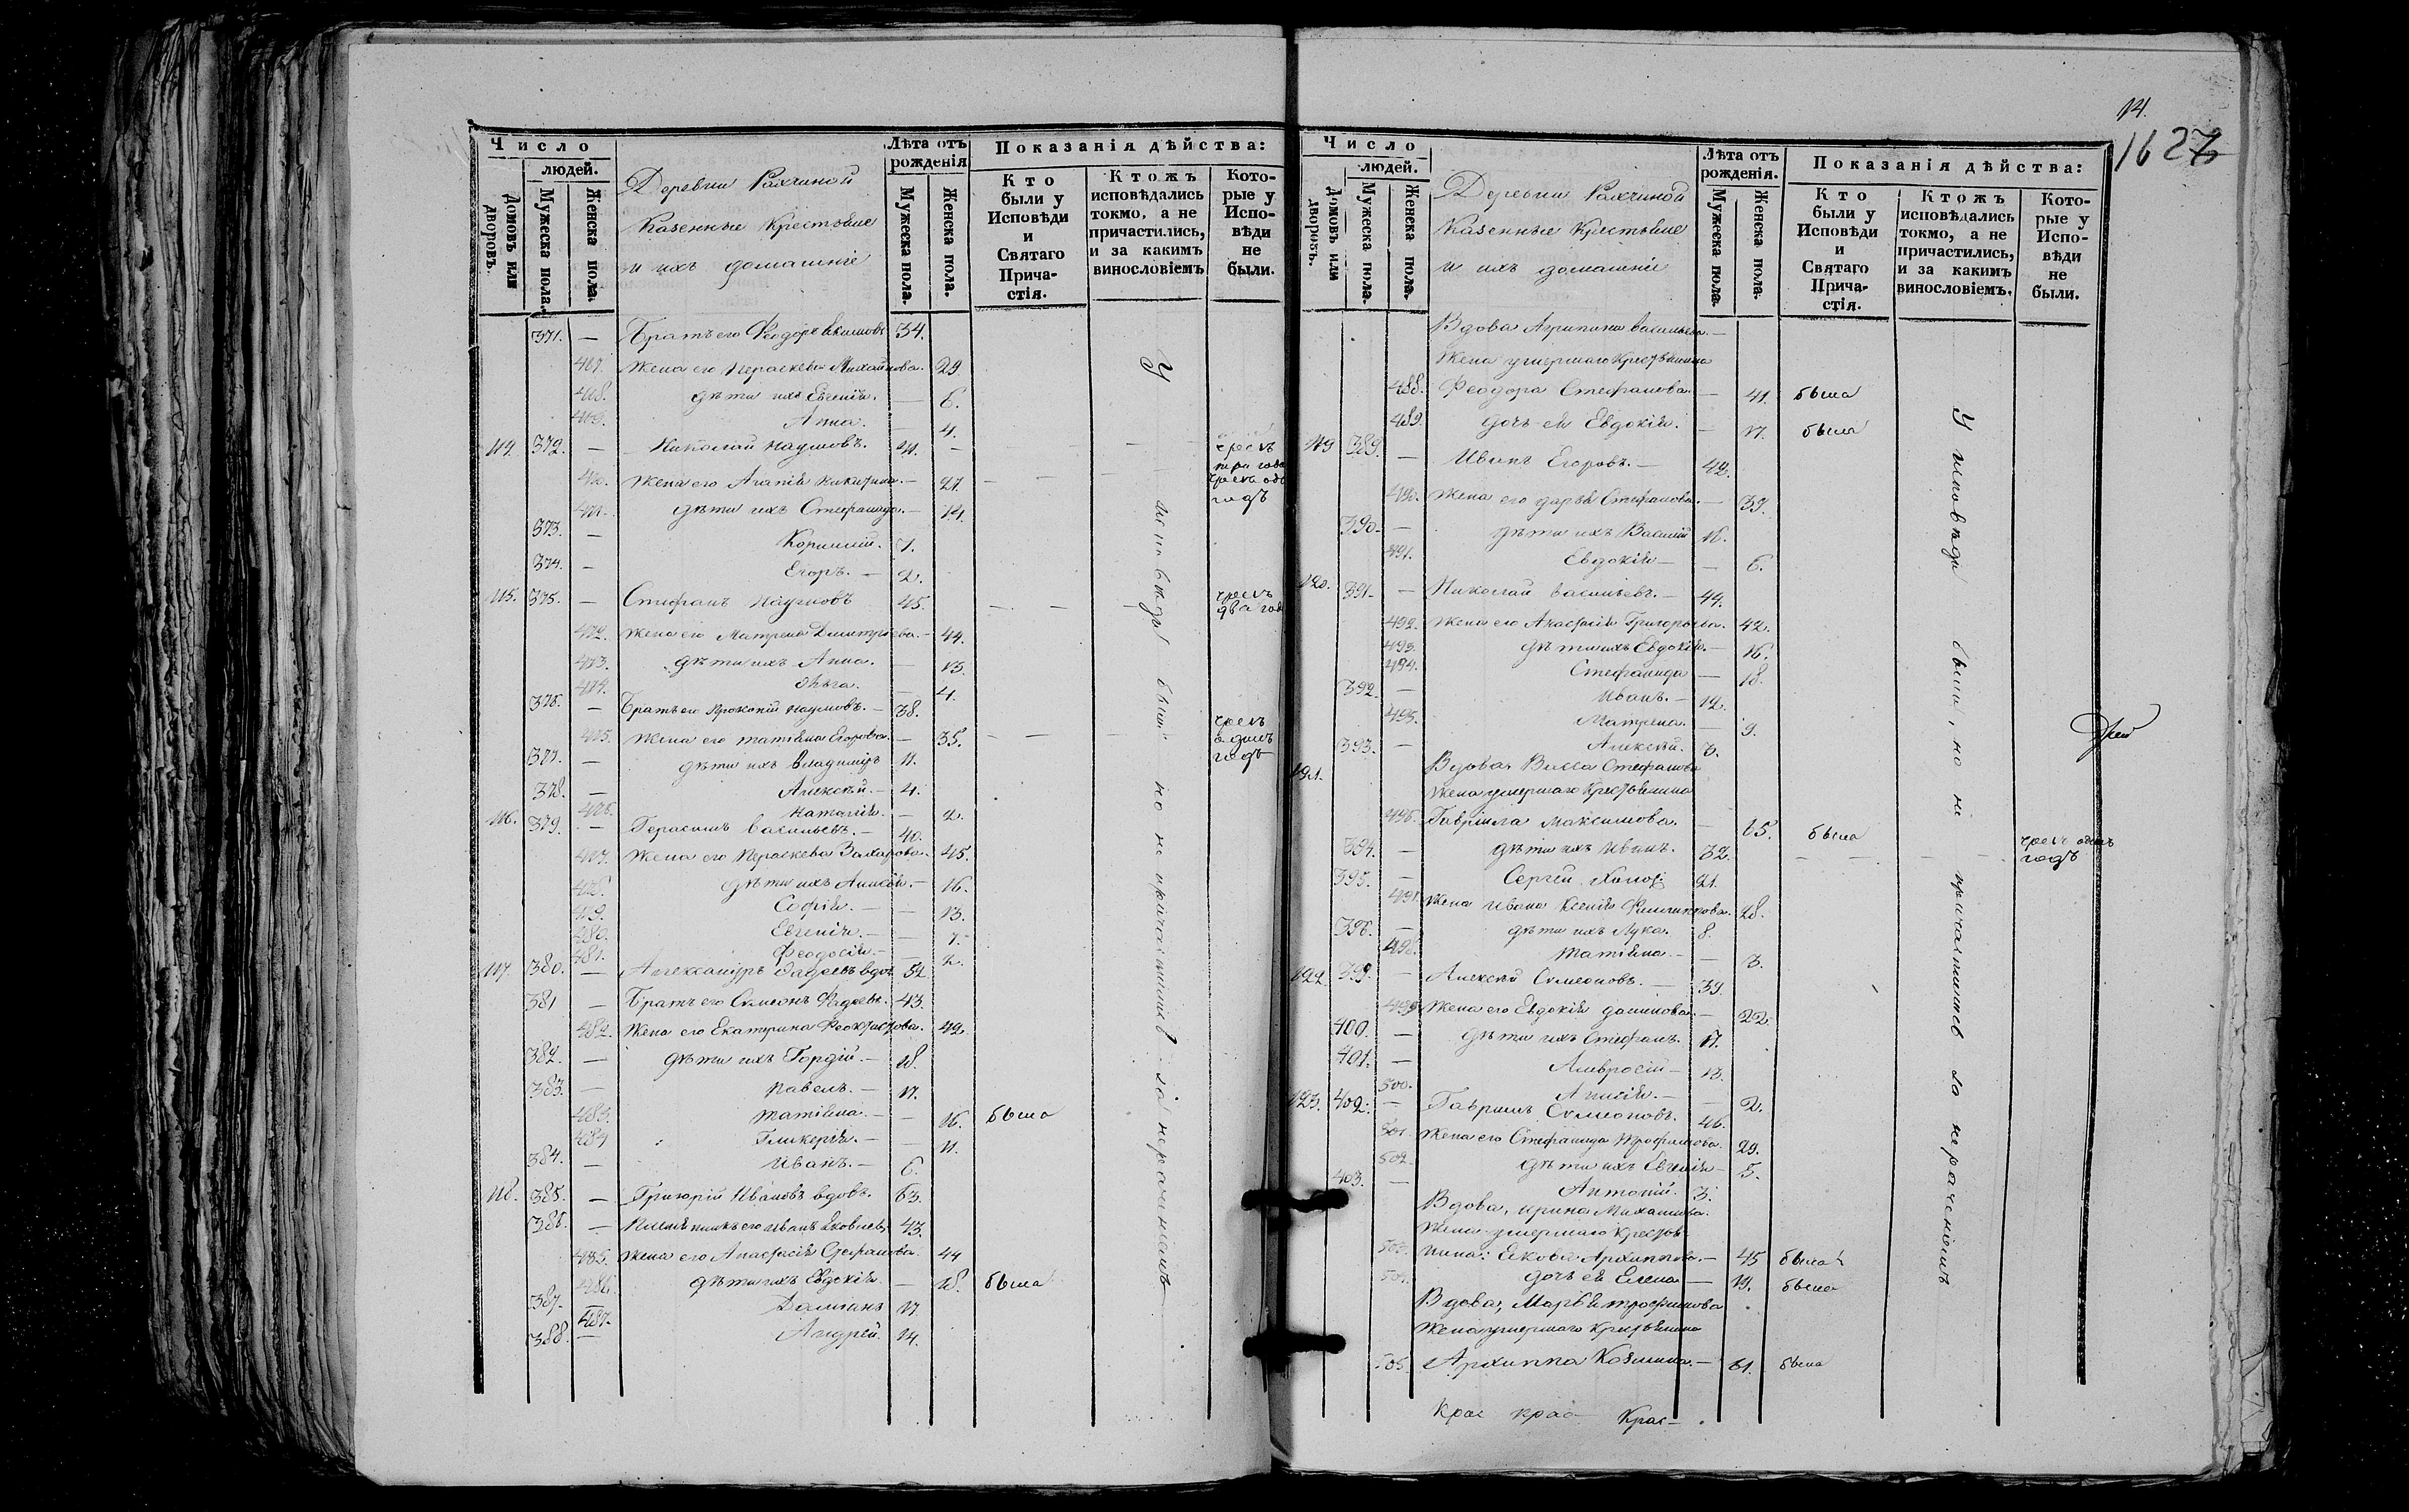 Число
людей.
Домовъ или дворовъ.
Мужеска пола.
Женска пола.
Деревни
Казенные Крестьяне
и ихъ домашніе
Лѣта отъ рожденія
Мужеска пола.
Женска пола.
Показанія дѣйства:
Кто были у Исповѣди и Святаго Причастія.
Ктожъ исповѣдались токмо, а не причастились, и за какимъ винословіемъ
Которые у Исповѣди не были.
371. — Братъ его Феодоръ 34.
467. Жена его Параскева Михайлова. 29
468. дѣти ихъ Евгенія. — 6.
469. Анна. — 4.
114. 372. — Николай Наумовъ. 41. — чрезъ три года
470. Жена его Агапія Никитина. — 27. чрезъ одъ годъ
471. дѣти ихъ Стефанида. — 14.
373. — Корнилій. 7.
374. — Егоръ. — 2.
115. 375. — Стефанъ Наумовъ 45. чрезъ два года
472. Жена его Матрена Димитріева. — 44.
473. дѣти ихъ Анна. — 13.
474. Ольга. — 4.
376. — Братъ его Прокопій Наумовъ. — 38.
475. Жена его Татіана Егорова. — 35. чрезъ одинъ годъ
377. — дѣти ихъ Владиміръ 11.
378. — Алексѣй. — 4.
476. Наталія. — 2.
116. 379. — Герасимъ Васильевъ. — 40.
477. Жена его Параскева Захарова. 45.
478. дѣти ихъ Анисія. — 16.
479. Софія. — 13.
480. Евгенія. — 7.
481. Феодосія. — 2.
117. 380. — Александръ Фадеевъ вдов. 54.
381 — Братъ его Симеонъ Фадеевъ. 43.
482. Жена его Екатерина Феоктистова. 42
382. — дѣти ихъ Гордій. — 18.
383. — Павелъ. — 17.
483. Татіана. — 16. была
484 Гликерія. — 11.
384. — Иванъ. — 6.
118. 385. — Григорій Ивановъ вдовъ. 63.
386. — Племянникъ его Иванъ Яковлевъ 43.
485. Жена его Анастасія Стефанова 44
486. дѣти ихъ Евдокія. — 18. была
387. Даміанъ 17.
487.
388. — Андрей. 14.
У исповѣди были но не причастились за нераченіемъ
14.
1627
Число
людей.
Домовъ или дворовъ.
Мужеска пола.
Женска пола.
Деревни
Казенные Крестьяне
и ихъ домашніе
Лѣта отъ рожденія.
Мужеска пола.
Женска пола.
Показанія дѣйства:
Кто были у Исповѣди и Святаго Причастія.
Ктожъ исповѣдались токмо, а не причастились, и за какимъ винословіемъ.
Которые у Исповѣди не были.
Вдова Агрипина Васильева —
Жена умершаго Крестьянина
488. Феодора Стефанова — 41. была
489. дочь ея Евдокія. — 17. была
119 389. — Иванъ Егоровъ. — 42.
490. Жена его Дарья Стефанова. — 39.
390. — дѣти ихъ Василій 16.
491. Евдокія — 6.
120. 391. — Николай Васильевъ. — 44.
492. Жена его Анастасія Григорьева. 42.
493. дѣти ихъ Евдокія. — 16.
494. Стефанида — 18.
392. — Иванъ. — 12.
495. Матрена. — 9.
393. — Алексѣй. 3.
121. Вдова, Васса Стефанова
Жена умершаго Крестьянина
496. Гавріила Максимова. — 65. была
394. — дѣти ихъ Иванъ. 32. чрезъ одинъ годъ
395. — Сергѣй 21.
497. Жена Ивана Ксенія Филипповна. 28.
396. — дѣти ихъ Лука. 8.
498. Татіана. — 3.
122 399. — Алексѣй Симеоновъ. — 39.
499 Жена его Евдокія — 22.
400. — дѣти ихъ Стефанъ. 17.
401. — Амвросій — 13.
500. Анисія. — 2.
123. 402. — Гавріилъ Симеоновъ. 46.
501. Жена его Стефанида Трофимова. 29.
502. дѣти ихъ Евгенія — 5.
403. — Антоній. 3.
Вдова, Ирина Михайлова.
Жена умершаго Крестья
503. нина: Якова Архиппова. — 45 была
504. дочь ея Елена — 19. была
Вдова, Марѳа Трофимова
Жена умершаго Крестьянина
505 Архиппа Козмина. — 61. была
У исповѣди были, но не причастились за нераченіемъ
Крас крас Крас —